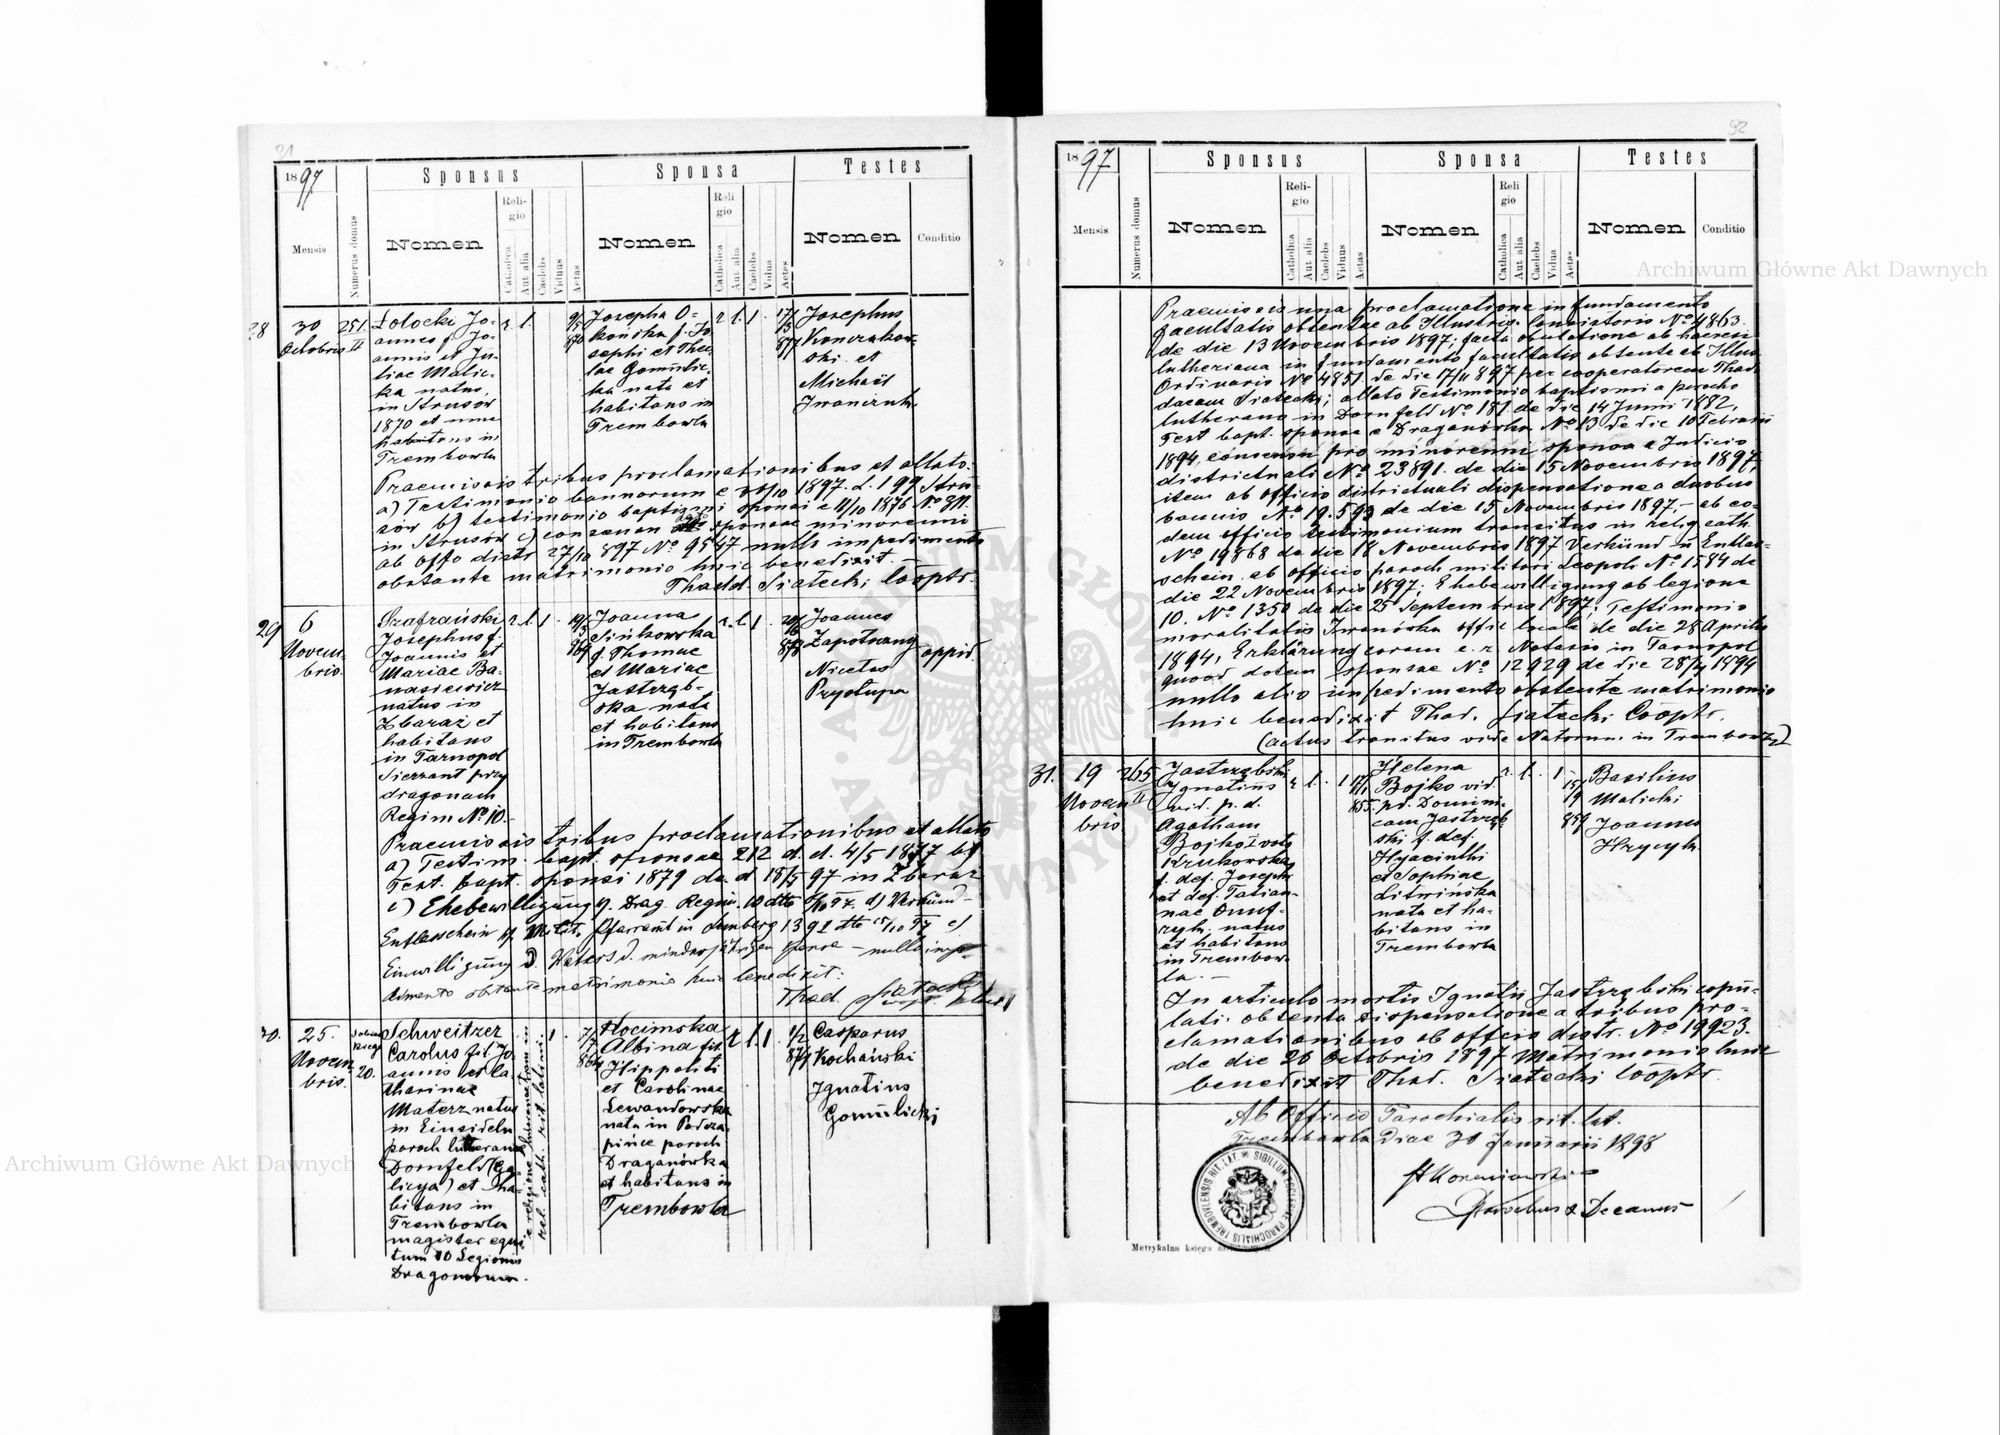 91
1897
Mensis
Numerus domus
Sponsus
Nomen
Religio
Catholica
Aut alia
Caelebs
Viduus
Aetas
Sponsa
Nomen
Reli gio
Catholica
Aut alia
Caelebs
Vidua
Aetas
Testes
Nomen
Conditio
28
30
Octobris
251
II
Łotocki Jo-
annes f. Jo-
annis et Ju-
liae Malic-
ka natus
in Strusów
1870 et nunc
habitans in
Trembowla
r. l.
Josepha O-
końska f. Jo
sephi et Thec
lae Gomulic-
ka nata et
habitans in
Trembowla
r. l. 1.
Josephus
ski et
Michail
Praemissis tribus proclamationibus et allato
a) Testimonio bannorum e 1897. L. 199 Stru-
sów b) testimonio baptismi sponsi e 11/10 1876 No
in Strusów c) consensu sponsae minorenni
ab offo distr 27/10 897 No 9547 nullo impedimento
obstante matrimonio huic benedixit.—
Thadd. Siatecki Cooptr.
29
6
Novem-
bris.
Szafrański
Josephus f.
Joannis et
Mariae Ba-
nasiewicz
natus in
Zbaraż et
habitans
in Tarnopol
Sierżant przy
dragonach
Regim No 10.
r. l. 1.
Joanna
Sinkowska
f. Thomae
et Mariae
Jastrzęb-
ska nata
et habitans
in Trembowla
r. l. 1.
Joannes
Zapotoczny
Nicetas
Przytupa
oppid.
Praemissis tribus proclamationibus et allato
a) Testim. bapt. sponsae 212 d. d. 4/5 1877 b)
Test. bapt. sponsi 1879 de d 18/5 97 in Zbaraż
c) Ehebewilligung v. Drag. Regim. 10 dtto d) Verkünd-
Entlasschein v. Milit. Pfarramt in Lemberg 1391 dtto 15/10 97 e)
Einwilligung d. Vaters d. minderjährigen Sponsae — nullo impe-
dimento obstante matrimonio huic benedixit:
Thad. Siatecki
30.
25.
Novem
bris.
20.
Schweitzer
Carolus fil. Jo-
annis et Ca-
tharinae
Materz natus
in Einsideln
paroch lutherana
Dornfeld (Ga-
licya) et ha-
bitans in
Trembowla
magister equi-
tum 10 Legionis
Dragonum.
e religione lutheranorum in
rel. cath. rit. latini.
1.
Kocimska
Albina fil.
Hippoliti
et Carolinae
Lewandowska
nata in Podcza
pińce paroch
Draganówka
et habitans in
Trembowla
r. l. 1.
Casparus
Kochański
Ignatius
Gomulicki
92
1897
Mensis
Numerus domus
Sponsus
Nomen
Religio
Catholica
Aut alia
Caelebs
Viduus
Aetas
Sponsa
Nomen
Reli gio
Catholica
Aut alia
Caelebs
Vidua
Aetas
Testes
Nomen
Conditio
Praemissis una proclamatione in fundamento
facultatis obtentae ab Illustris. Consistorio No 4863.
de die 13 Novembris 1897; facta abiuratione ab haeresi
lutheriana in fundamento facultatis obtente ab Illus.
Ordinario No 4851. de die 17/11 897 per cooperatorem Thad-
daeum Siatecki; allato Testimonio baptismi a parocho
lutherano in Dornfeld No 181 de die 14 Junii 1882,
Test bapt. sponsae e Draganówka No 13 de die 10 Februarii
1894, consensu pro minorenni sponsa a Judicio
districtuali No 23891. de die 15 Novembris 1897,
item ab officio districtuali dispensatione a duobus
bannis No 19.593 de die 15 Novembris 1897,— ab eo-
dem officio testimonium transitus in relig cath.
No 19868 de die 18 Novembris 1897 Verkünd u Entlas-
schein ab officio paroch militari Leopoli No 1584 de
die 22 Novembris 1897; Ehebewilligung ab legione
10. No 1350 de die 25 Septembris 1897; Testimonio
moralitatis Iwanówka offic locale de die 28 Aprilis
1894, Erklärung coram c. r. Notario in Tarnopol
quoad dotem sponsae No 12929 de die 1894
nullo alio impedimento obstante matrimonio
huic benedixit Thad. Siatecki Cooptr.
(actus transitus vide Natorum. in Trembowla)
31.
19
Novem
bris.
265
II
Jastrzębski
Ignatius
vid. p. d.
Agatham
Bojko 1 voto
Krukowska
f. def. Josephi
et def. Tatian-
nae Onuf-
ryk natus
et habitans
in Trembow-
la.—
r. l. 1
Helena
Bojko vid.
pd. Domini-
cum Jastrzęb-
ski f. def.
Hyacinthi
et Sophiae
Litwińska
nata et ha-
bitans in
Trembowla
r. l. 1
Basilius
Malicki
Joannes
Hrycyk.
In articulo mortis Ignatii Jastrzębski copu-
lati. obtenta dispensatione a tribus pro-
clamationibus ab officio distr. No 19923.
de die 26 Octobris 1897 Matrimonio huic
benedixit Thad. Siatecki Cooptr.
Ab Officio Parochialis rit. lat.
Trembowla Diae 31 Januarii 1898
Parochus & Decanus
SIGILLUM ECCLESIAE PAROCHIALIS TREMBOVLENSIS RIT. LAT.
Metrykalna księga
Archiwum Główne Akt Dawnych
Archiwum Główne Akt Dawnych